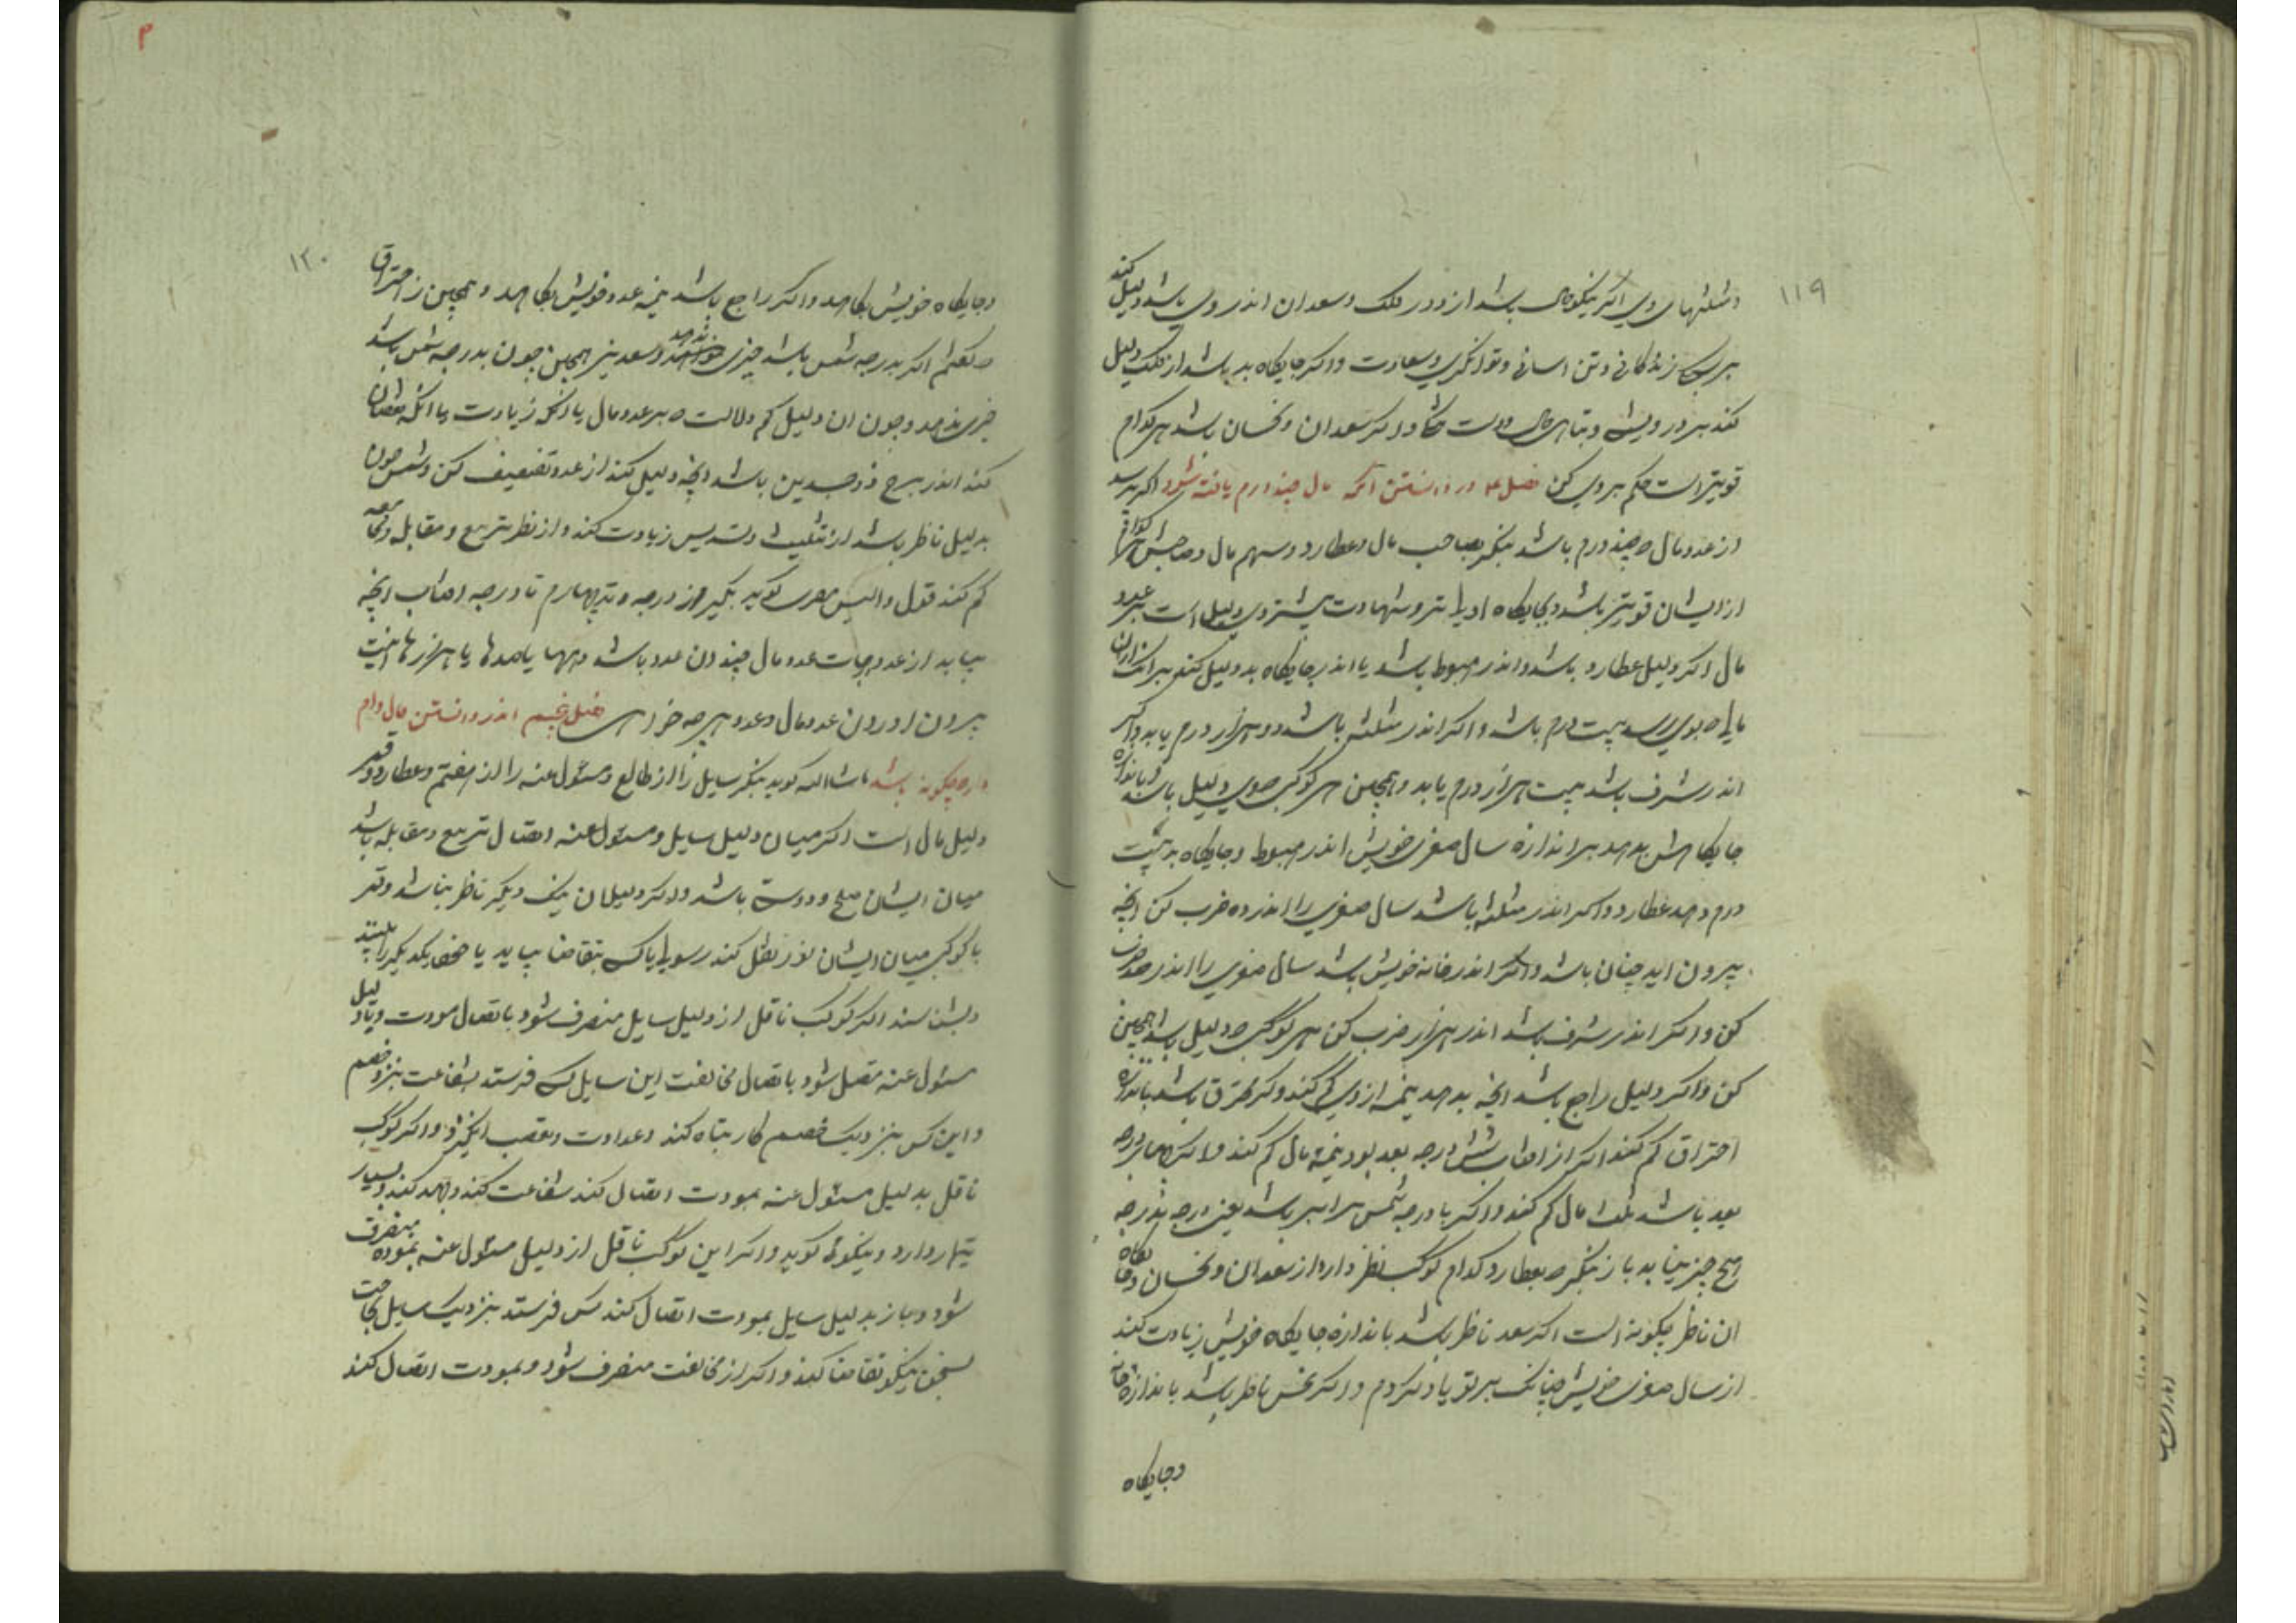 ۱۱۹
ومثلثهای وی اکر نیکوحال باشد از دور فلک وسعدان اندر وی باشد دلیل کند
بر زندکانی وتن اسانی وتوانکری وسعادت واکر جایکاه بد باشد از فلک دلیل
کند بر درویشی وتباهی حال واکر سعدان ونحسان باشد هرکدام
قویتر است حکم بر وی کن فصل در دانستن آنکه مال چند درم یافته شود اکر پرسد
از عدد مال که چند درم باشد بنکر بصاحب مال وعطارد وسهم مال وصاحبش هرکدام
از ایشان قویتر باشد وبجایکاه اولیتر وشهادت بیشتر وی دلیل است بر عدد
مال اکر دلیل عطارد باشد واندر هبوط باشد یا اندر جایکاه بد دلیل کند بر انک از ان
مال که بوی رسد بیست درم باشد واکر اندر مثلثش باشد دو هزار درم یابد واکر
اندر شرف باشد بیست هزار درم یابد وهمچنین هر کوکبی که وی دلیل باشد باندازه
جایکاهش بدهد بر اندازه سال صغری خویش اندر هبوط وجایکاه بد بیست
درم دهد عطارد واکر اندر مثلثه باشد سال صغری را اندر ده ضرب کن انچه
بیرون اید چنان باشد واکر اندر خانه خویش باشد سال صغری را اندر صد ضرب
کن واکر اندر شرف باشد اندر هزار ضرب کن هر کوکبی که دلیل باشد همچنین
کن واکر دلیل راجع باشد انچه بدهد نیمه از وی کم کند واکر محترق باشد باندازه
احتراق کم کند اکر از افتاب شش درجه بعد بود نیمه مال کم کند واکر بچهار درجه
بعد باشد ثلث مال کم کند واکر با درجه شمس برابر باشد یعنی درجه بدرجه
هیچ چیز نیابد باز بنکر که بعطارد کدام کوکب نظر دارد از سعدان ونحسان وجایکاه
ان ناظر چکونه است اکر سعد ناظر باشد باندازه جایکاه خویش زیادت کند
از سال صغری خویش چنانک بر تو یاد کردم واکر نحس ناظر باشد باندازه
وجایکاه
۱۲۰
وجایکاه خویش بکاهد واکر راجع باشد نیمه عدد خویش بکاهد وهمچنین از احتراق
که کفتم اکر بدرجه شمس باشد چیزی ندهد وسعد نیز همچنین چون بدرجه شمس باشد
چیزی ندهد وچون ان دلیل که دلالت کند بر عدد مال یا انکه زیادت یا انکه نقصان
کند اندر برج ذوجسدین باشد انچه دلیل کند از عدد تضعیف کن وشمس چون
بدلیل ناظر باشد از تثلیث وتسدیس زیادت کند واز نظر تربیع ومقابله ومجامعه
کم کند قول والیس مصری کوید بکیر از درجه وتد چهارم تا درجه افتاب انچه
بیاید از عدد درجات عدد مال چندان عدد باشد دهها یا صدها یا هزارها اینست
بیرون اوردن عدد مال وعدد هر چه خواهی فصل پنجم اندر دانستن حال وام
دار که چکونه باشد ماشاالله کوید بنکر سایل را از طالع ومسئول عنه را از هفتم وعطارد وقمر
دلیل مال است اکر میان دلیل سایل ومسئول عنه اتصال تربیع ومقابله باشد
میان ایشان صلح ودوستی باشد واکر دلیلان بیک دیکر ناظر نباشد وقمر
با کوکبی میان ایشان نور نقل کند رسولی یا کسی بتقاضا بیاید یا خصم یکدیکر را بینند
وبشناسند اکر کوکب ناقل از دلیل سایل منصرف شود باتصال مودت وبا دلیل
مسئول عنه متصل شود باتصال مخالفت این سایل کس فرستد بشفاعت بنزد خصم
واین کس بنزدیک خصم کار تباه کند وعداوت وتعصب انکیزد واکر کوکب
ناقل بدلیل مسئول عنه بمودت اتصال کند شفاعت کند وجهد کند وبسیار
تیمار دارد ونیکوئی کوید واکر این کوکب ناقل از دلیل مسئول عنه بمودت منصرف
شود وباز بدلیل سایل بمودت اتصال کند کس فرستد بنزدیک سایل بحاجت
بسخن نیکو تقاضا کند واکر از مخالفت منصرف شود وبمودت اتصال کند